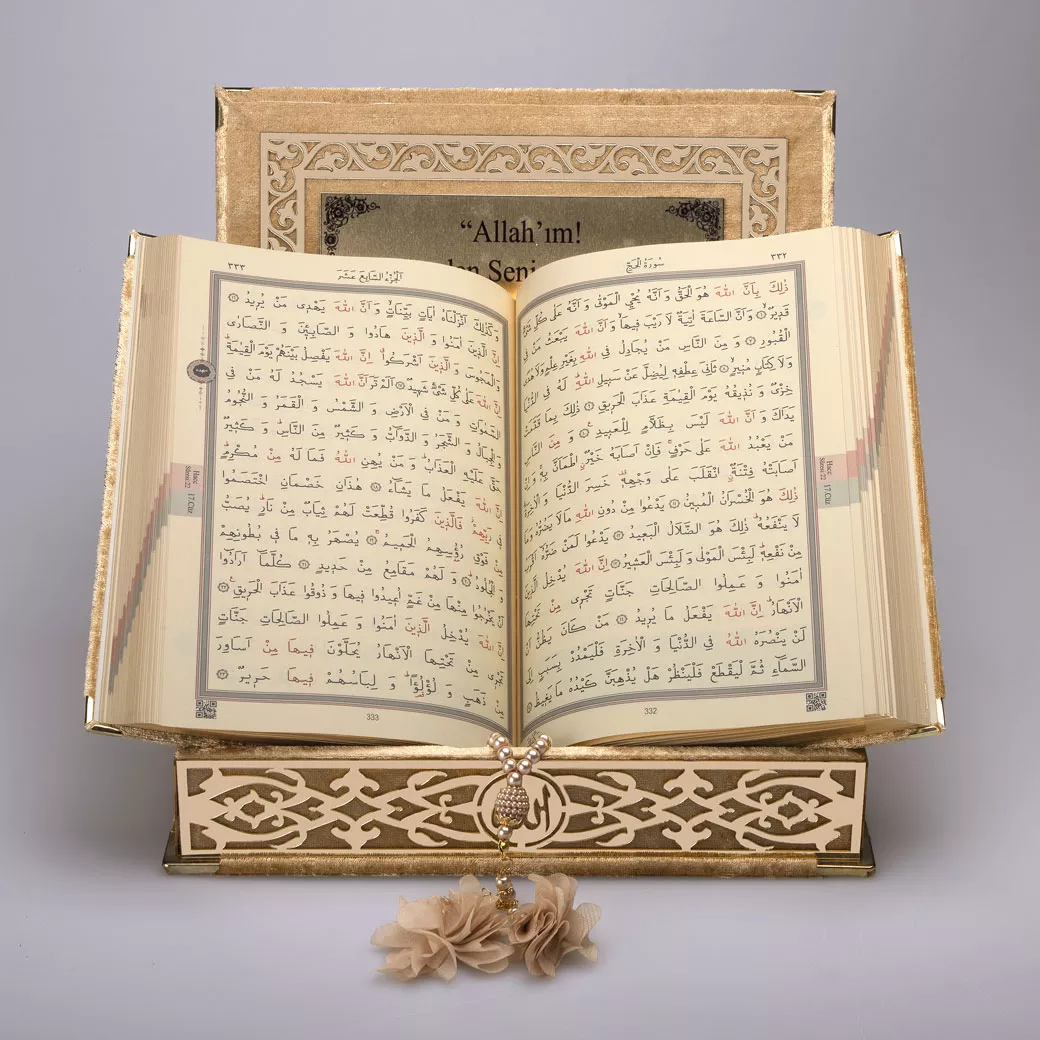 “Allah’ım!
Seni
٣٣٢
سُورَةُ الْحَجِّ
ذٰلِكَ بِاَنَّ اللّٰهَ هُوَ الْحَقُّ وَ اَنَّهُ يُحْيِ الْمَوْتٰى وَ اَنَّهُ عَلٰى كُلِّ شَيْءٍ
قَدِيرٌ ﴿٦﴾ وَاَنَّ السَّاعَةَ اٰتِيَةٌ لَا رَيْبَ فِيهَا وَاَنَّ اللّٰهَ يَبْعَثُ مَنْ فِي
الْقُبُورِ ﴿٧﴾ وَ مِنَ النَّاسِ مَنْ يُجَادِلُ فِي اللّٰهِ بِغَيْرِ عِلْمٍ وَلَا هُدًى
وَلَا كِتَابٍ مُنِيرٍ ﴿٨﴾ ثَانِيَ عِطْفِهِ لِيُضِلَّ عَنْ سَبِيلِ اللّٰهِ لَهُ فِي الدُّنْيَا
خِزْيٌ وَ نُذِيقُهُ يَوْمَ الْقِيٰمَةِ عَذَابَ الْحَرِيقِ ﴿٩﴾ ذٰلِكَ بِمَا قَدَّمَتْ
يَدَاكَ وَ اَنَّ اللّٰهَ لَيْسَ بِظَلَّامٍ لِلْعَبِيدِ ﴿١٠﴾ وَ مِنَ النَّاسِ
مَنْ يَعْبُدُ اللّٰهَ عَلٰى حَرْفٍ فَاِنْ اَصَابَهُ خَيْرٌ اطْمَاَنَّ بِهِ وَ اِنْ
اَصَابَتْهُ فِتْنَةٌ انْقَلَبَ عَلٰى وَجْهِهِ خَسِرَ الدُّنْيَا وَ الْاٰخِرَةَ
ذٰلِكَ هُوَ الْخُسْرَانُ الْمُبِينُ ﴿١١﴾ يَدْعُوا مِنْ دُونِ اللّٰهِ مَا لَا يَضُرُّهُ وَمَا
لَا يَنْفَعُهُ ذٰلِكَ هُوَ الضَّلَالُ الْبَعِيدُ ﴿١٢﴾ يَدْعُوا لَمَنْ ضَرُّهُ اَقْرَبُ
مِنْ نَفْعِهِ لَبِئْسَ الْمَوْلٰى وَ لَبِئْسَ الْعَشِيرُ ﴿١٣﴾ اِنَّ اللّٰهَ يُدْخِلُ الَّذِينَ
اٰمَنُوا وَ عَمِلُوا الصَّالِحَاتِ جَنَّاتٍ تَجْرِي مِنْ تَحْتِهَا
الْاَنْهَارُ اِنَّ اللّٰهَ يَفْعَلُ مَا يُرِيدُ ﴿١٤﴾ مَنْ كَانَ يَظُنُّ اَنْ
لَنْ يَنْصُرَهُ اللّٰهُ فِي الدُّنْيَا وَ الْاٰخِرَةِ فَلْيَمْدُدْ بِسَبَبٍ اِلَى
السَّمَاءِ ثُمَّ لْيَقْطَعْ فَلْيَنْظُرْ هَلْ يُذْهِبَنَّ كَيْدُهُ مَا يَغِيظُ ﴿١٥﴾
Hacc
Sûresi 22
17.Cüz
332
٣٣٣
اَلْجُزْءُ السَّابِعَ عَشَرَ
وَكَذٰلِكَ اَنْزَلْنَاهُ اٰيَاتٍ بَيِّنَاتٍ وَ اَنَّ اللّٰهَ يَهْدِي مَنْ يُرِيدُ ﴿١٦﴾
اِنَّ الَّذِينَ اٰمَنُوا وَ الَّذِينَ هَادُوا وَ الصَّابِئِينَ وَ النَّصَارٰى
وَ الْمَجُوسَ وَ الَّذِينَ اَشْرَكُوا اِنَّ اللّٰهَ يَفْصِلُ بَيْنَهُمْ يَوْمَ الْقِيٰمَةِ
اِنَّ اللّٰهَ عَلٰى كُلِّ شَيْءٍ شَهِيدٌ ﴿١٧﴾ اَلَمْ تَرَ اَنَّ اللّٰهَ يَسْجُدُ لَهُ مَنْ فِي
السَّمٰوَاتِ وَ مَنْ فِي الْاَرْضِ وَ الشَّمْسُ وَ الْقَمَرُ وَ النُّجُومُ
وَ الْجِبَالُ وَ الشَّجَرُ وَ الدَّوَابُّ وَ كَثِيرٌ مِنَ النَّاسِ وَ كَثِيرٌ
حَقَّ عَلَيْهِ الْعَذَابُ وَ مَنْ يُهِنِ اللّٰهُ فَمَا لَهُ مِنْ مُكْرِمٍ
اِنَّ اللّٰهَ يَفْعَلُ مَا يَشَاءُ ﴿١٨﴾ هٰذَانِ خَصْمَانِ اخْتَصَمُوا
فِي رَبِّهِمْ فَالَّذِينَ كَفَرُوا قُطِّعَتْ لَهُمْ ثِيَابٌ مِنْ نَارٍ يُصَبُّ
مِنْ فَوْقِ رُؤُسِهِمُ الْحَمِيمُ ﴿١٩﴾ يُصْهَرُ بِهِ مَا فِي بُطُونِهِمْ
وَ الْجُلُودُ ﴿٢٠﴾ وَ لَهُمْ مَقَامِعُ مِنْ حَدِيدٍ ﴿٢١﴾ كُلَّمَا اَرَادُوا
اَنْ يَخْرُجُوا مِنْهَا مِنْ غَمٍّ اُعِيدُوا فِيهَا وَ ذُوقُوا عَذَابَ الْحَرِيقِ ﴿٢٢﴾
اِنَّ اللّٰهَ يُدْخِلُ الَّذِينَ اٰمَنُوا وَ عَمِلُوا الصَّالِحَاتِ جَنَّاتٍ
تَجْرِي مِنْ تَحْتِهَا الْاَنْهَارُ يُحَلَّوْنَ فِيهَا مِنْ اَسَاوِرَ
مِنْ ذَهَبٍ وَ لُؤْلُؤًا وَ لِبَاسُهُمْ فِيهَا حَرِيرٌ ﴿٢٣﴾
Hacc
Sûresi 22
17.Cüz
333
الله